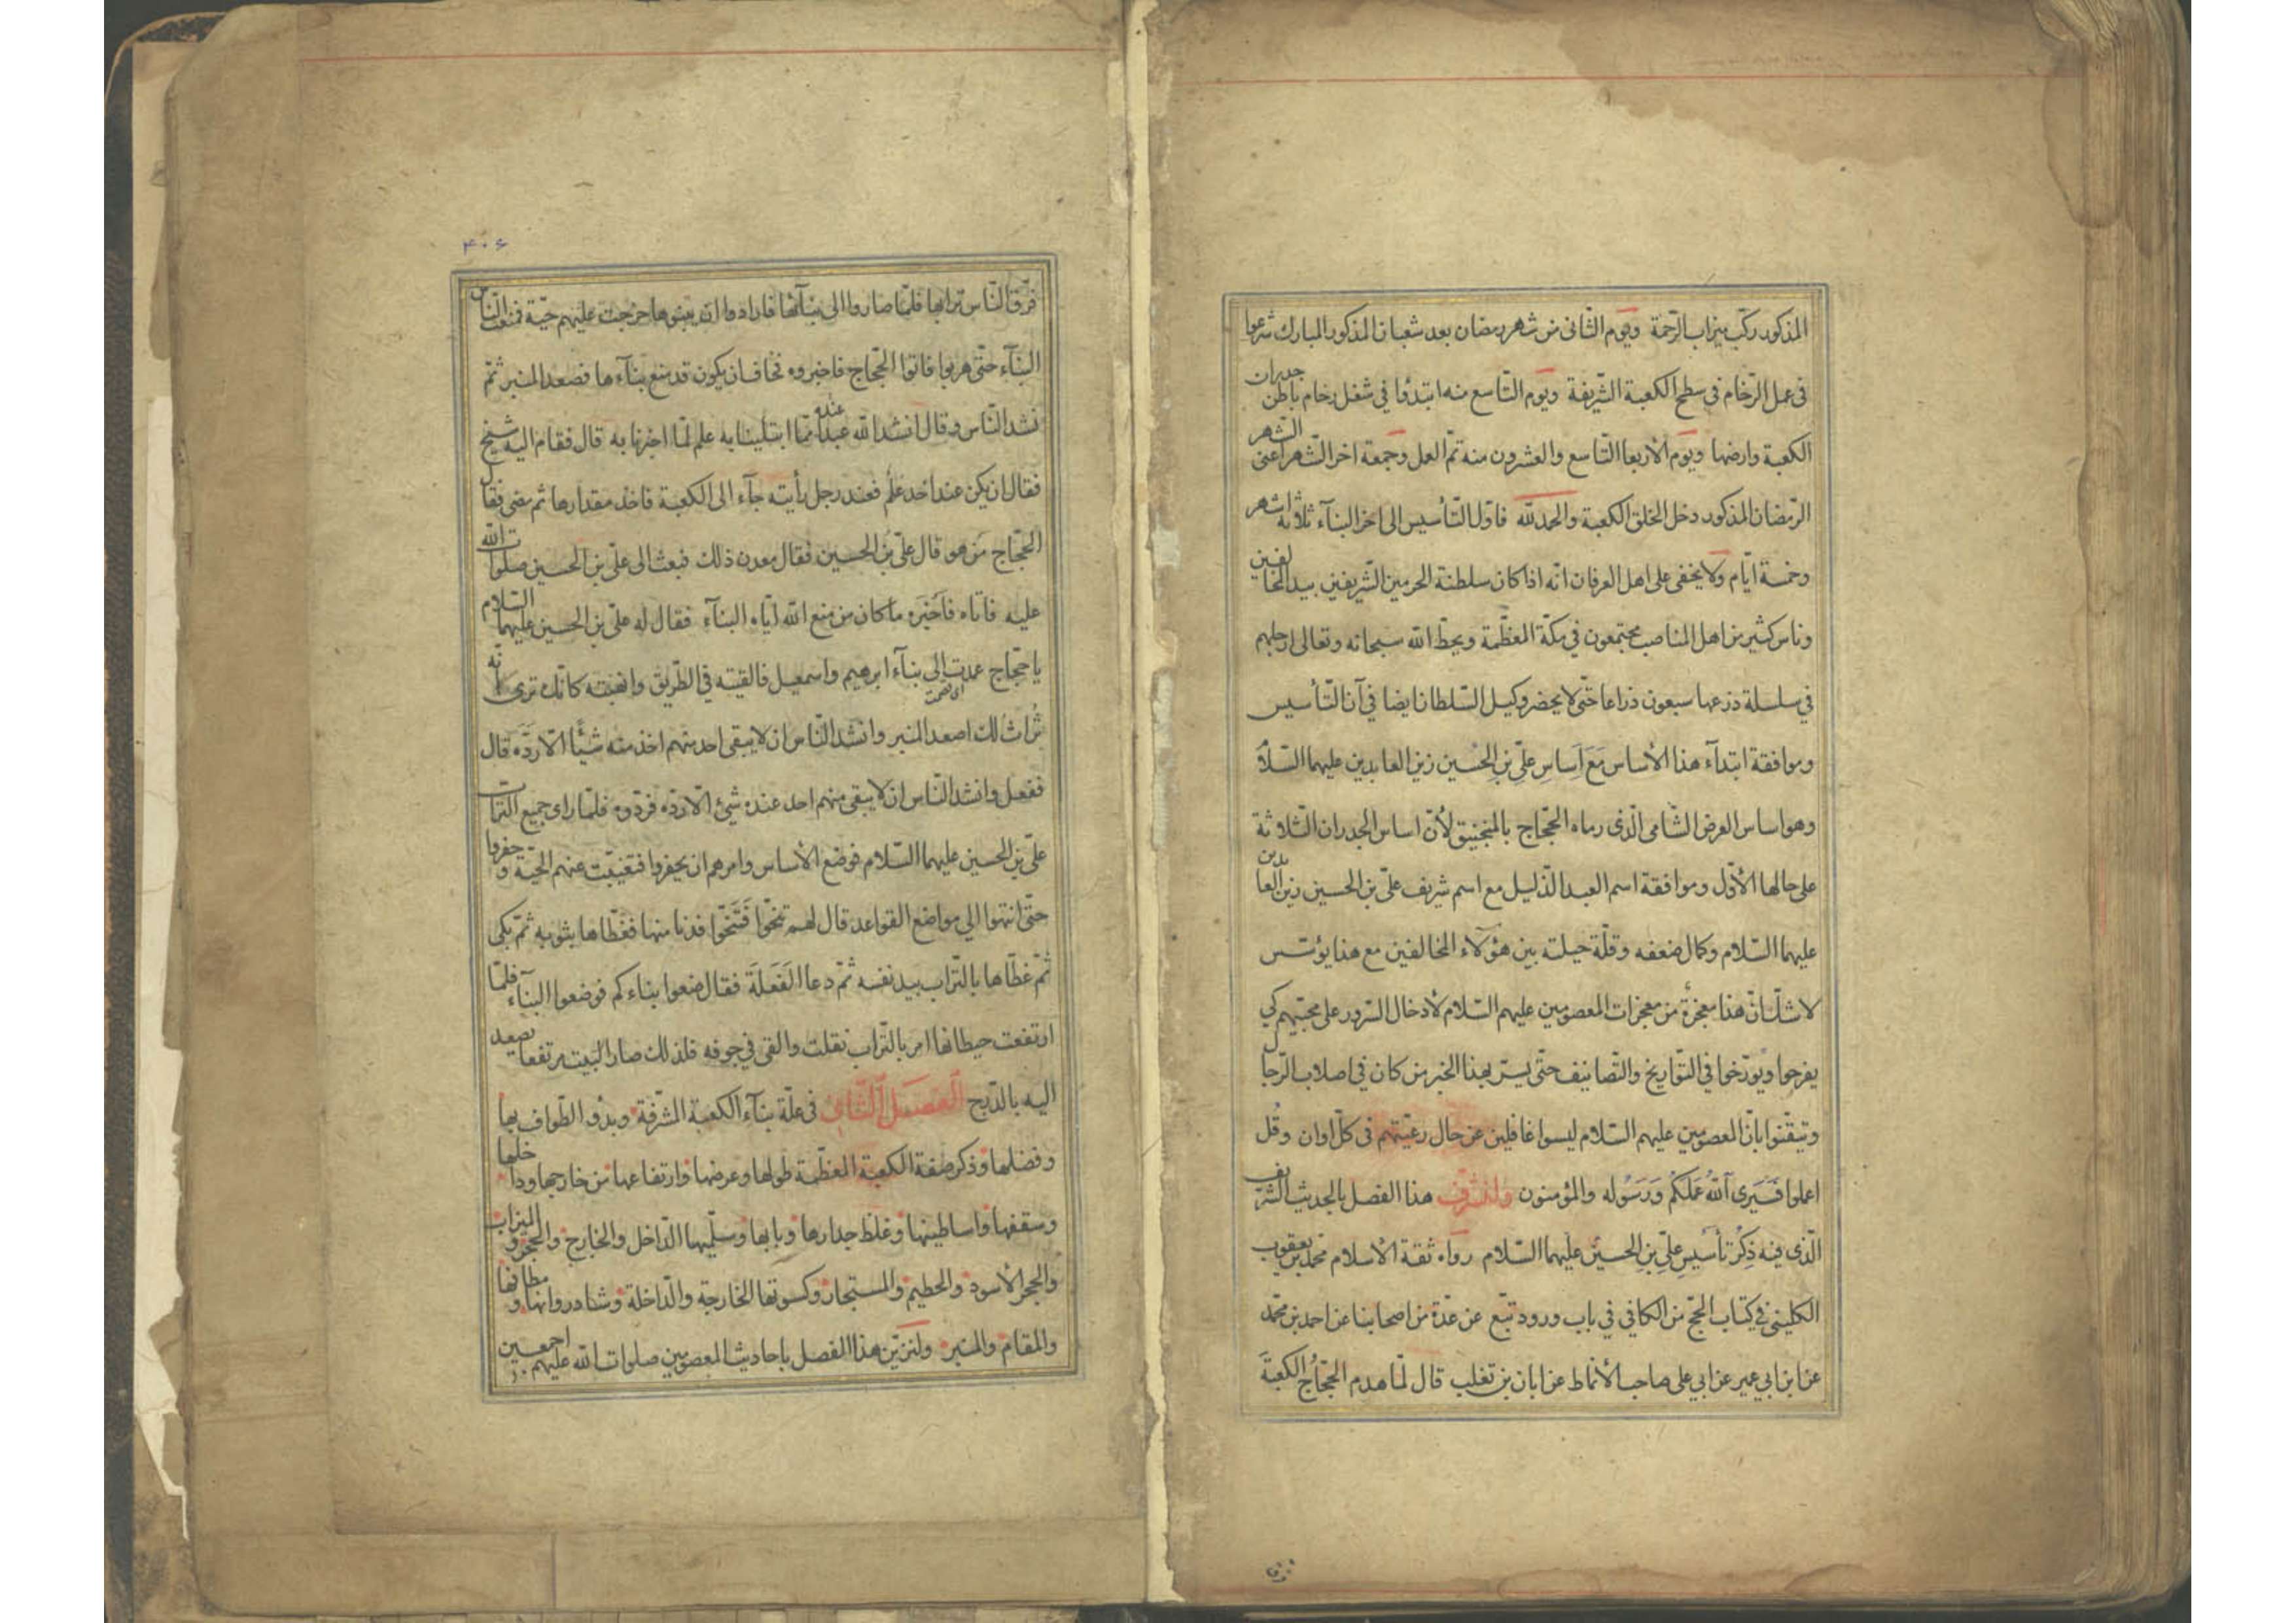 المذكور ركّب ميزاب الرّحمة ويوم الثّانى من شهر رمضان بعد شعبان المذكور المبارك شرعوا
فى عمل الرّخام فى سطح الكعبة الشّريفة ويوم التّاسع منه ابتدؤا فى شغل رخام باطن جدران
الكعبة وارضها ويوم الأربعا التّاسع والعشرون منه تمّ العمل وجمعة اخر الشّهر اعنى الشهر
الرّمضان المذكور دخل الخلق الكعبة والحمد للّه فاوّل التّأسيس الى اخر البنآء ثلاثة اشهر
وخمسة ايّام ولا يخفى على اهل العرفان انّه اذا كان سلطنة الحرمين الشّريفين بيد المخالفين
وناس كثير من اهل المناصب مجتمعون فى مكّة المعظّمة ويحطّ اللّه سبحانه وتعالى ارجلهم
فى سلسلة ذرعها سبعون ذراعا حتّى لا يحضر وكيل السّلطان ايضا فى آن التّأسيس
وموافقة ابتدآء هذا الأساس مَعَ اَسَاسِ علىّ بنِ الحُسين زين العابدين عليهما السّلام
وهو اساس العرض الشّامى الّذى رماه الحجّاج بالمنجنيق لأنّ اساس الجدران الثّلاثة
على حالها الأوّل وموافقة اسم العبد الذّليل مع اسم شريف علىّ بن الحسين زين العابدين
عليهما السّلام وكمال ضعفه وقلّة حيلته بين هؤلآء المخالفين مع هذا يؤسّس
لا شكّ انّ هذا معجزة من معجزات المعصومين عليهم السّلام لأدخال السّرور على محبّيهم كى
يفرحوا ويورّخوا فى التّواريخ والتّصانيف حتّى يسرّ بهذا الخبر من كان فى اصلاب الرّجال
وتيقّنوا بانّ المعصومين عليهم السّلام ليسوا غافلين عن حال رعيّتهم فى كلّ اوان وقُل
اعلوا فَسَيَرى اَللّهُ عَمَلَكُمْ وَرَسُوله والمؤمنون ولنشرّف هذا الفصل بالحديث الشّريف
الّذى فيه ذِكْرُ تأسيسِ علىِّ بنِ الحسين عليهما السّلام رواه ثقة الأسلام محمّد بن يعقوب
الكلينى فى كتاب الحجّ من الكافى فى باب ورود تبّع عن عدّة من اصحابنا عن احمد بن محمّد
عن ابن ابى عمير عن ابى على صاحب الأنماط عن ابان بن تغلب قال لمّا هدم الحجّاجُ الكعبةَ
۴۰۶
فرّق النّاس ترابها فلمّا صاروا الى بنآئها فارادوا ان يبنوها خرجت عليهم حيّة فمنعت النّاس
البنآء حتّى هربوا فاتوا الحجّاج فاخبروه فخاف ان يكون قد منع بنآءها فصعد المنبر ثمّ
نشد النّاس وقال انشد اللّه عبدا عنده ممّا ابتلينا به علم لمّا اخبرنا به قال فقام اليه شيخ
فقال ان يكن عند احد علم فعند رجل رأيته جآء الى الكعبة فاخذ مقدارها ثم مضى فقال
الحجّاج مَن هو قال علىّ بن الحسين فقال معدن ذلك فبعث الى علىّ بن الحسين صلوات اللّه
عليه فاتاه فاَخْبَره ما كان من منع اللّه ايّاه البنآء فقال له علىّ بن الحسين عليهما السّلام
يا حجّاج عمدت الى بنآء ابرهيم واسمعيل فالقيته فى الطّريق وانتهبته كانّك ترى انّه
تُراث لك اصعد المنبر وانشد النّاس ان لا يبقى احد منهم اخذ منه شيئًا الّا ردّه قال
ففعل وانشد النّاس ان لا يبقى منهم احد عنده شىء الّا ردّه فردّوه فلمّا راى جميع التّراب
علىّ بن الحسين عليهما السّلام فوضع الأساس وامرهم ان يحفروا فتغيّبت عنهم الحيّة وحفروا
حتّى انتهوا الى مواضع القواعد قال لهم تنحّوا فَتَنَحّوا فدنا منها فغطّاها بثوبه ثمّ بكى
ثمّ غطّاها بالتّراب بيد نفسه ثمّ دعا الفَعَلَةَ فقال ضعوا بناءكم فوضعوا البنآء فلمّا
ارتفعت حيطانها امر بالتّراب نقلت والقى فى جوفه فلذلك صار البيت مرتفعا يصعد
اليه بالدّرج الفصل الثّانى فى علّة بنآء الكعبة المشرّفة وبدؤ الطّواف بها
وفضلها وذكر صفة الكعبة المعظّمة طولها وعرضها وارتفاعها من خارجها وداخلها
وسقفها واساطينها وغلظ جدارها وبابها وسلّميها الدّاخل والخارج والحجر والميزاب
والحجر الأسود والحطيم والمستجار وكسوتها الخارجة والدّاخلة وشادروانها ومطافها
والمقام والمنبر ولنزيّن هذا الفصل باحاديث المعصومين صلوات اللّه عليهم اجمعين